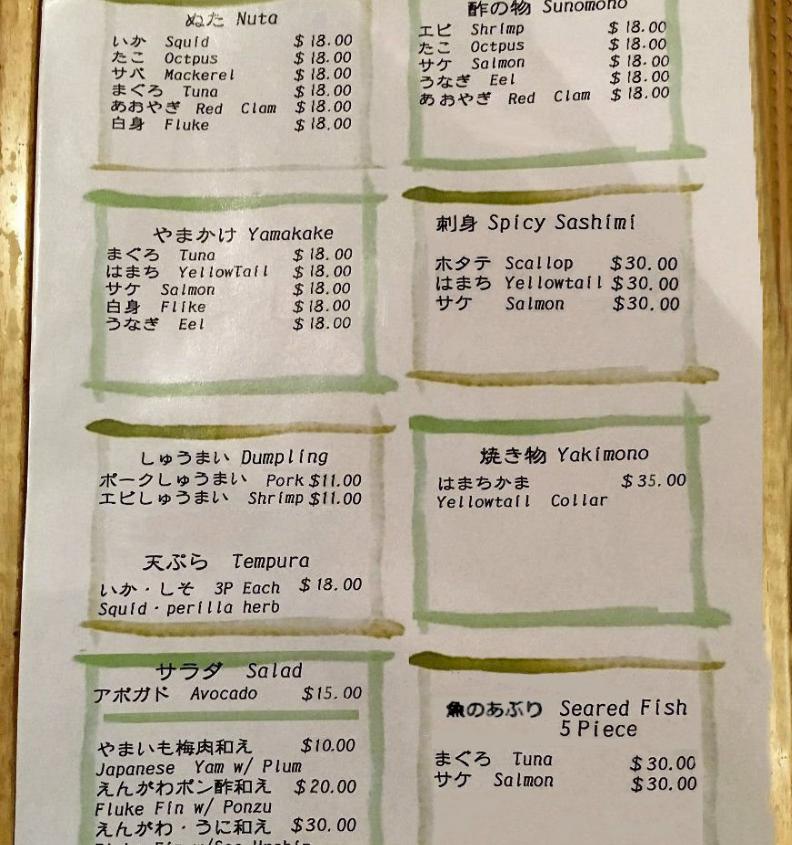 ぬた Nuta
いか Squid $18.00
たこ Octpus $18.00
サバ Mackerel $18.00
まぐろ Tuna $18.00
あおやぎ Red Clam $18.00
白身 Fluke $18.00
酢の物 Sunomono
エビ Shrimp $18.00
たこ Octpus $18.00
サケ Salmon $18.00
うなぎ Eel $18.00
あおやぎ Red Clam $18.00
やまかけ Yamakake
まぐろ Tuna $18.00
はまち YellowTail $18.00
サケ Salmon $18.00
白身 Flike $18.00
うなぎ Eel $18.00
刺身 Spicy Sashimi
ホタテ Scallop $30.00
はまち Yellowtail $30.00
サケ Salmon $30.00
しゅうまい Dumpling
ポークしゅうまい Pork $11.00
エビしゅうまい Shrimp $11.00
天ぷら Tempura
いか・しそ 3P Each $18.00
Squid・perilla herb
焼き物 Yakimono
はまちかま $35.00
Yellowtail Collar
サラダ Salad
アボガド Avocado $15.00
やまいも梅肉和え $10.00
Japanese Yam w/ Plum
えんがわポン酢和え $20.00
Fluke Fin w/ Ponzu
えんがわ・うに和え $30.00
魚のあぶり Seared Fish
5 Piece
まぐろ Tuna $30.00
サケ Salmon $30.00